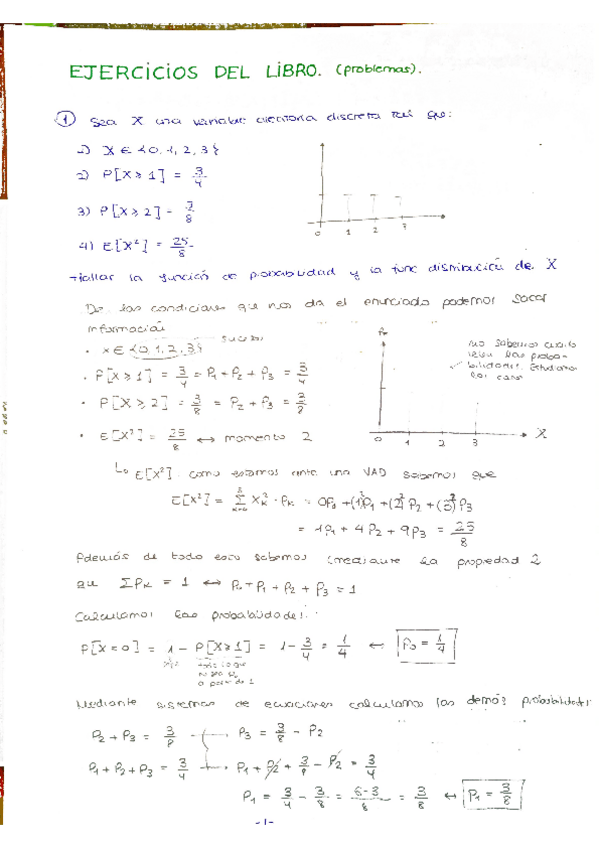 EJERCICIOS DEL LIBRO. (problemas).
1 Sea X una variable aleatoria discreta tal que:
1) X ∈ {0, 1, 2, 3}
2) P[X ≥ 1] = 3/4
3) P[X ≥ 2] = 3/8
4) E[X²] = 25/8
0 1 2 3
Hallar la función de probabilidad y la func distribución de X
De las condiciones que nos da el enunciado podemos sacar
información
· X ∈ {0, 1, 2, 3} sucesos
· P[X ≥ 1] = 3/4 = P1 + P2 + P3 = 3/4
· P[X ≥ 2] = 3/8 = P2 + P3 = 3/8
· E[X²] = 25/8 ↔ momento 2
no sabemos cuanto
valen las proba-
bilidades. Estudiamos
los casos
0 1 2 3 X
↳ E[X²] como estamos ante una VAD sabemos que
E[X²] = Σ Xk² · Pk = 0P0 + (1)²P1 + (2)²P2 + (3)²P3
= 1P1 + 4P2 + 9P3 = 25/8
Además de todo esto sabemos mediante la propiedad 2
que ΣPk = 1 ↔ P0 + P1 + P2 + P3 = 1
Calculamos las probabilidades:
P[X = 0] = 1 − P[X ≥ 1] = 1 − 3/4 = 1/4 ← P0 = 1/4
a partir de 1
Mediante sistemas de ecuaciones calculamos las demás probabilidades:
P2 + P3 = 3/8 P3 = 3/8 − P2
P1 + P2 + P3 = 3/4 → P1 + P2 + 3/8 − P2 = 3/4
P1 = 3/4 − 3/8 = 6-3/8 = 3/8 ↔ P1 = 3/8
-1-